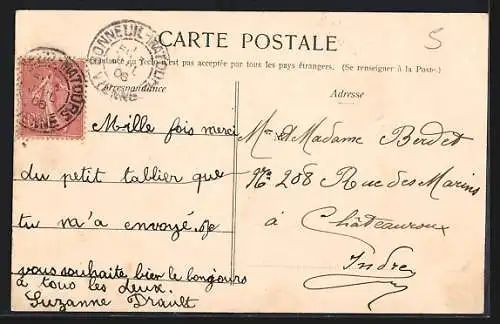 5
CARTE POSTALE
BONNEUIL-MATOURS
VIENNE
08
La Correspondance au recto n'est pas acceptée par tous les pays étrangers. (Se renseigner à la Poste.)
Correspondance
Adresse
Mille fois merci
du petit tablier que
tu m'a envoyé. Je
vous souhaite bien le bonjours
a tous les deux.
Suzanne Drault
Mr et Madame Berdet
No 208 Rue des Marins
à Châteauroux
Indre